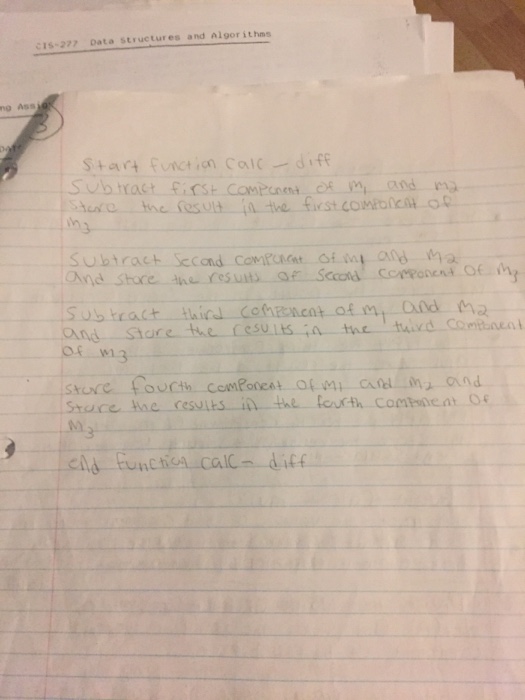 CIS-277 Data Structures and Algorithms
ng Assig
3
Date
Start function calc - diff
Subtract first component of m1 and m2
store the result in the first component of
m3
Subtract second component of m1 and m2
and store the results of second component of m3
Subtract third component of m1 and m2
and store the results in the third component
of m3
store fourth component of m1 and m2 and
store the results in the fourth component of
m3
end function calc - diff